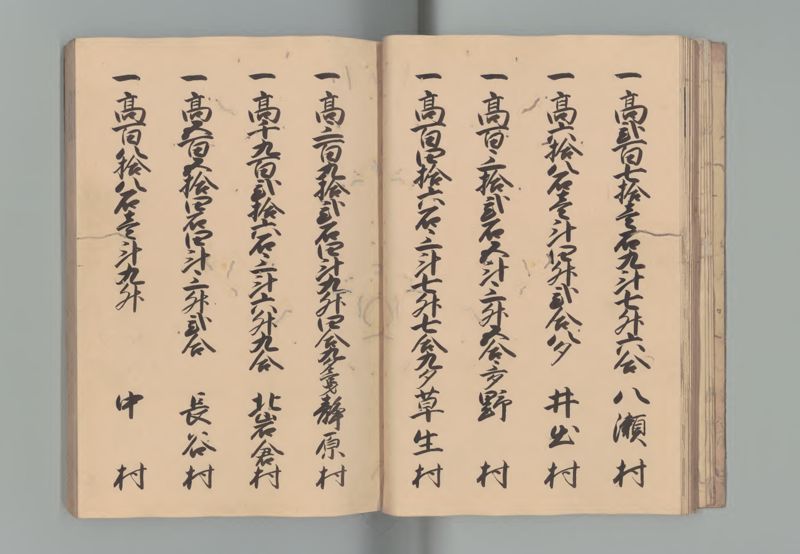 一高弐百七拾壱石九斗七升六合 八瀬村
一高六拾八石壱斗四升弐合八夕 井出村
一高百三拾弐石五斗三升五合 野村
一高百四拾六石三斗七升七合九夕 草生村
一高三百九拾弐石四斗九升四合九夕 静原村
一高千九百弐拾六石三斗六升九合 北岩倉村
一高五百五拾四石四斗三升弐合 長谷村
一高百八拾八石壱斗九升 中村